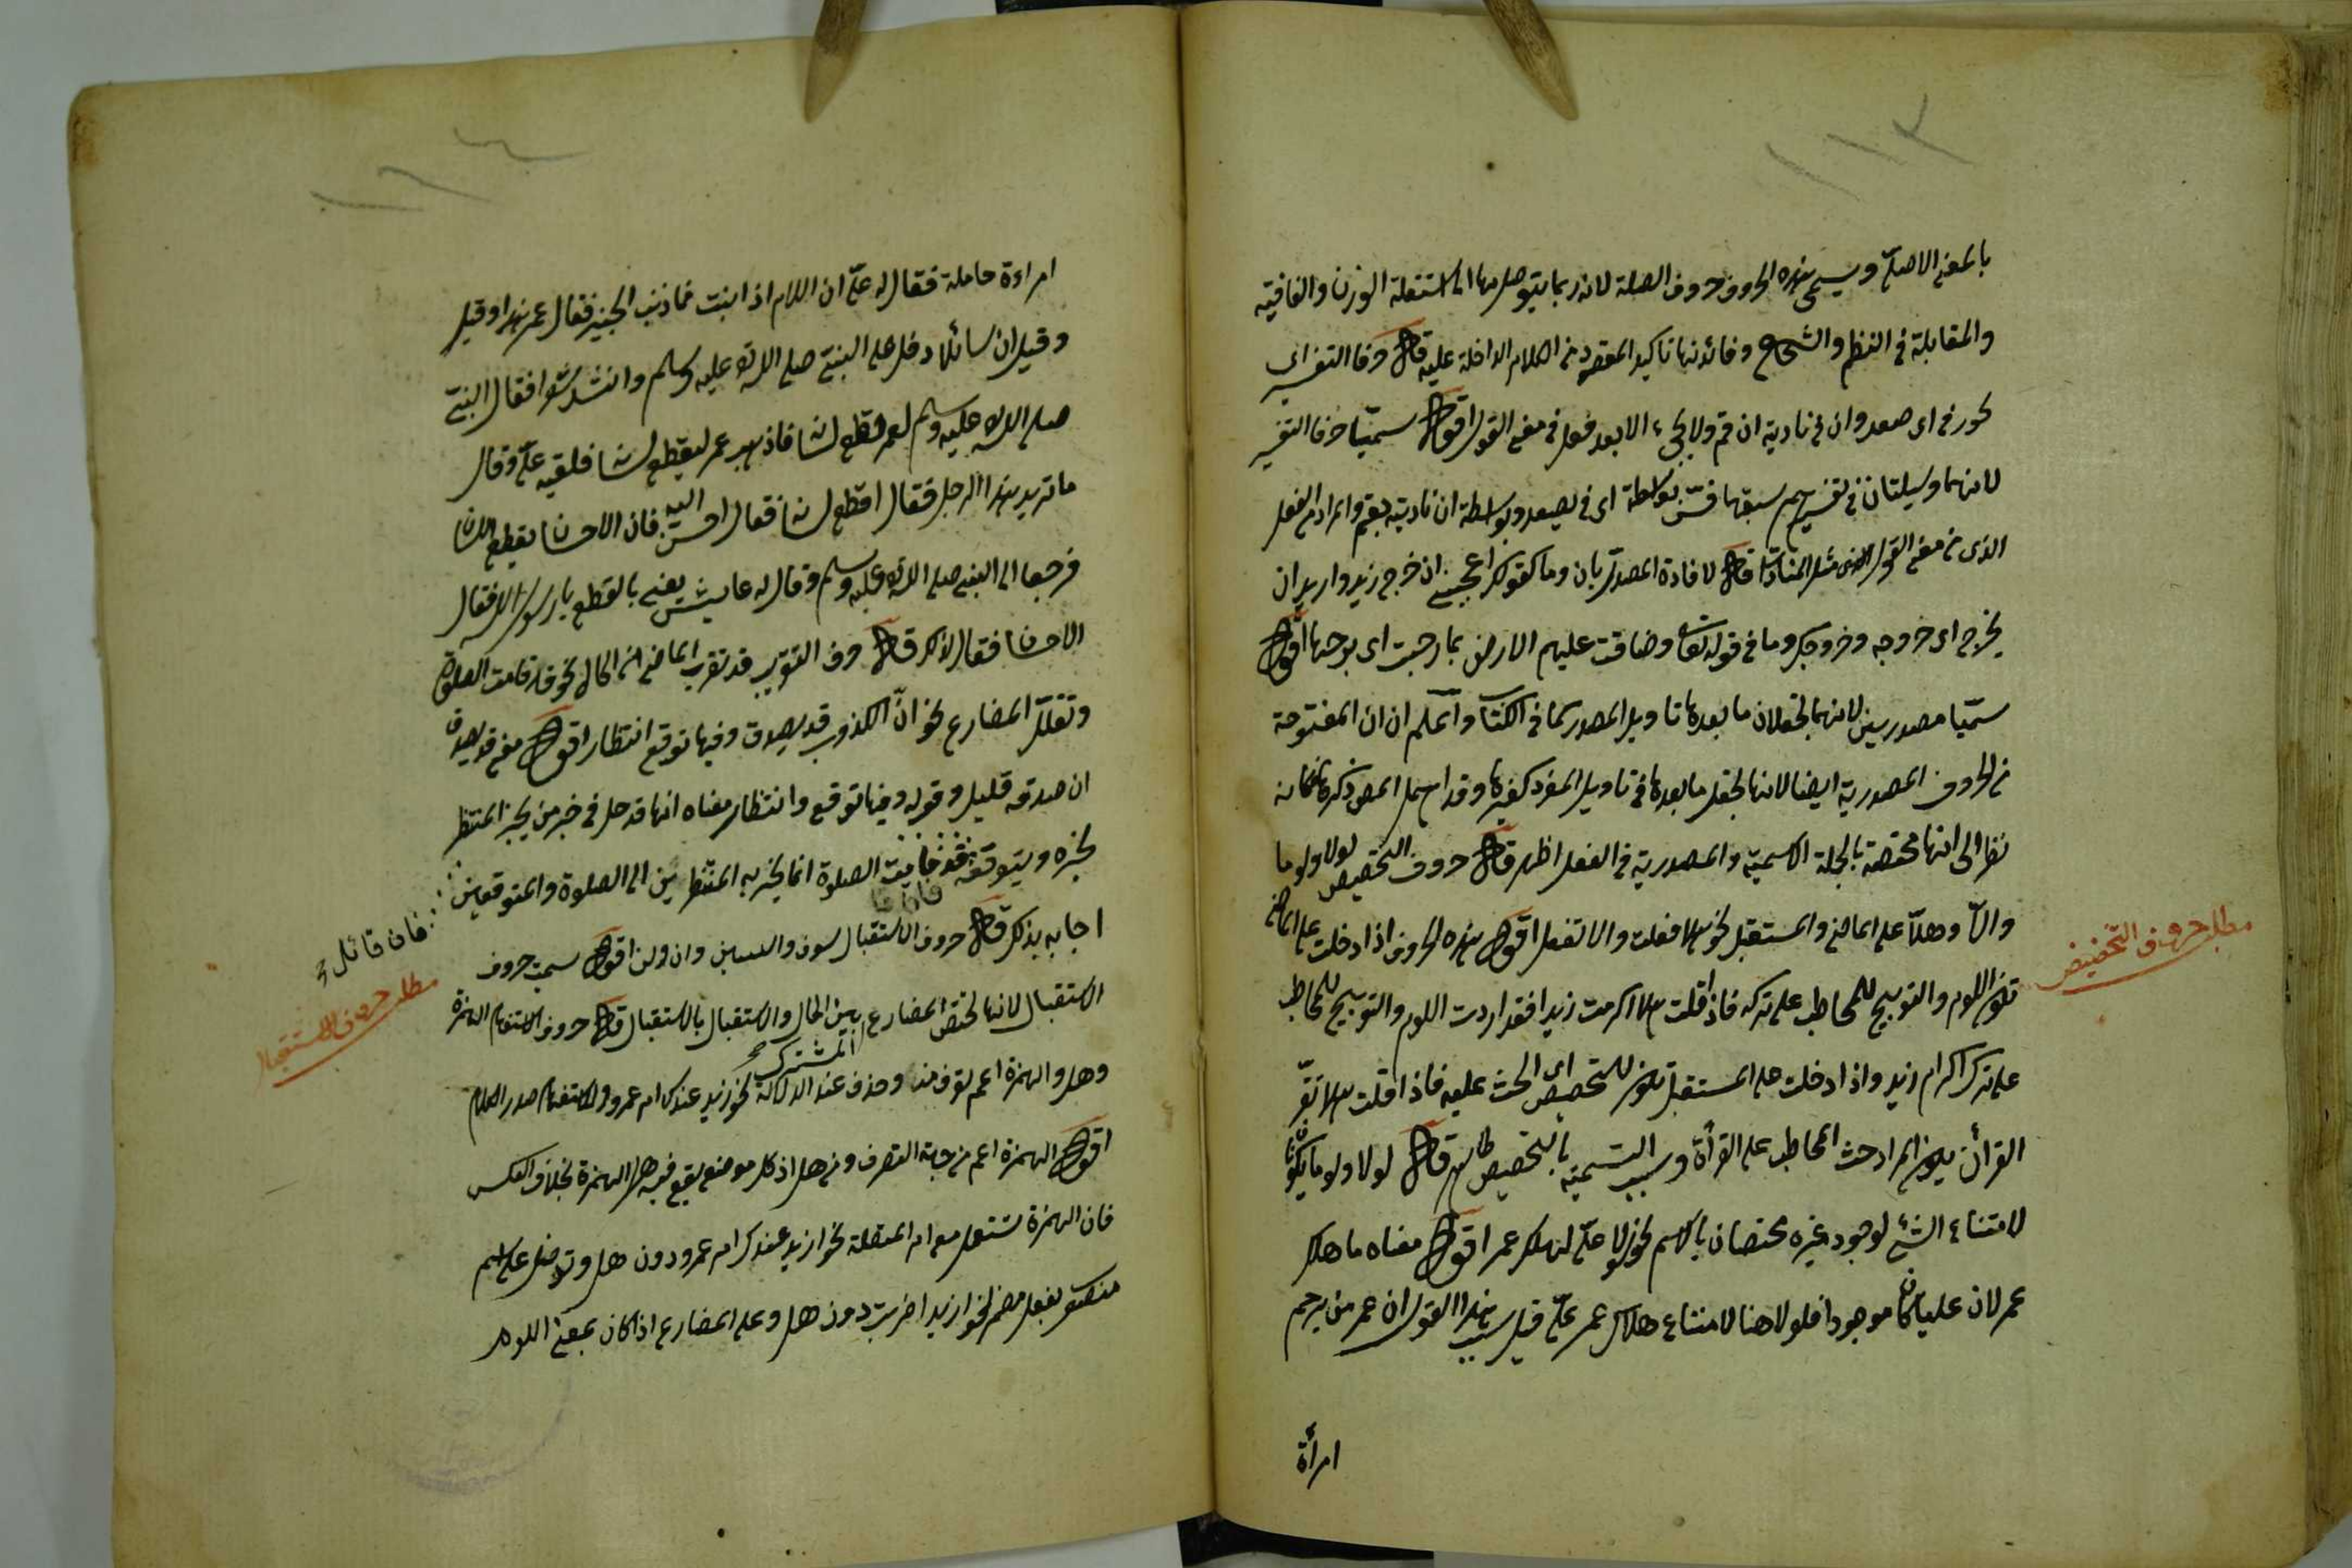 ١١٣
بالمعنى الاصلى ويسمى هذه الحروف حروف الصلة لانه ربما يتوصل بها الى استقامة الوزن والقافية
والمقابلة فى النظم والسجع وفائدتها تاكيد المقصود من الكلام الداخلة عليه قال حرفا التفسير اى
نحو رقى اى صعد وان فى ناديته ان قم ولا يجىء الا بعد فعل فى معنى القول اقول سميتا حرفا التفسير
لانهما وسيلتان فى تفسير مبهم سبقهما فسر بواسطة اى رقى بصعد وبواسطة ان ناديته بقم والمراد من الفعل
الذى من معنى القول مثل المناداة قال لافادة المصدر بان وما كقولك اعجبنى ان خرج زيد واريد ان
يخرج اى خروجه وخروجك وما فى قوله تعالى وضاقت عليهم الارض بما رحبت اى برحبها اقول
سميتا مصدريين لانهما يجعلان ما بعدهما تاويل المصدر كما فى الكتاب واعلم ان ان المفتوحة
من الحروف المصدرية ايضا لانها تجعل ما بعدها فى تاويل المفرد كغيرها وقد اهمل المص ذكرها
نظرا الى انها مختصة بالجملة الاسمية والمصدرية فى الفعل اظهر قال حروف التحضيض لولا ولوما
والا وهلا على الماضى والمستقبل نحو هلا فعلت والا تفعل اقول هذه الحروف اذا دخلت على الماضى
تكون اللوم والتوبيخ للمخاطب على تركه فاذا قلت هلا اكرمت زيدا فقد اردت اللوم والتوبيخ للمخاطب
على ترك اكرام زيد واذا دخلت على المستقبل تكون للتحضيض اى الحث عليه فاذا قلت هلا تقرء
القرأن يكون المراد حث المخاطب على القرأة وسبب التسمية بالتحضيض ظاهر قال لولا ولوما يكونان
لامتناع الشئ لوجود غيره مختصان بالاسم نحو لولا على لهلك عمر اقول معناه ما هلك
عمر لان عليا كان موجودا فلولا هنا لامتناع هلاك عمر على قيل سبب هذا القول ان عمر من يرجم
امرأة
مطلب حروف التحضيض
١١٤
امراءة حاملة فقال له على ان اللام اذا ابنت فما ذنب الجنين فقال عمر هذا وقيل
وقيل ان سائلا دخل على النبى صلى الله عليه وسلم وانشد شعرا فقال النبى
صلى الله عليه وسلم لعمر اقطع لسانه فاذهب عمر ليقطع لسانه فلقيه على وقال
ما تريد بهذا الرجل فقال اقطع لسانه فقال احسن اليه فان الاحسان يقطع اللسان
فرجعا الى النبى صلى الله عليه وسلم وقال له يعنى بالقطع يا رسول الله فقال
الاحسان فقال لذلك قال حرف التقريب قد تقرب الماضى الى الحال نحو قد قامت الصلوة
وتقلل المضارع نحو ان الكذوب قد يصدق وفيها توقع انتظار اقول معنى قد يصدق
ان صدقه قليل وقوله وفيها توقع وانتظار معناه انها قد حل فى خبر من يخبر المنتظر
بخبره ويتوقعه قد قامت الصلوة انما يخبر به المنتظرين الى الصلوة والمتوقعين
اجابه بذلك قال حروف الاستقبال سوف والسين وان ولن اقول سميت حروف
الاستقبال لانها تختص المضارع المشترك بين الحال والاستقبال بالاستقبال قال حروف الاستفهام الهمزة
وهل والهمزة اعم تصرف منه وحذف عند الدلالة نحو زيد عندك ام عمرو والاستفهام صدر الكلام
اقول الهمزة اعم من جهة التصرف من هل اذ كل موضع يقع فيه هل الهمزة بخلاف العكس
فان الهمزة تستعمل مع ام المتصلة نحو ازيد عندك ام عمرو دون هل وتدخل على اسم
منصوب بفعل مضمر نحو ازيدا ضربت دون هل وعلى المضارع اذا كان بمعنى اللوم
فان قائل
مطلب حروف الاستقبال